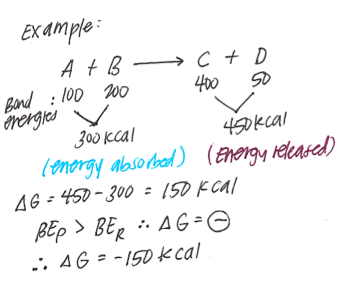 Example:
A + B ⟶ C + D
Bond energies : 100 200 400 50
300 kcal 450 kcal
(energy absorbed) (Energy released)
ΔG = 450 - 300 = 150 kcal
BEp > BER ∴ ΔG = ⊖
∴ ΔG = -150 kcal